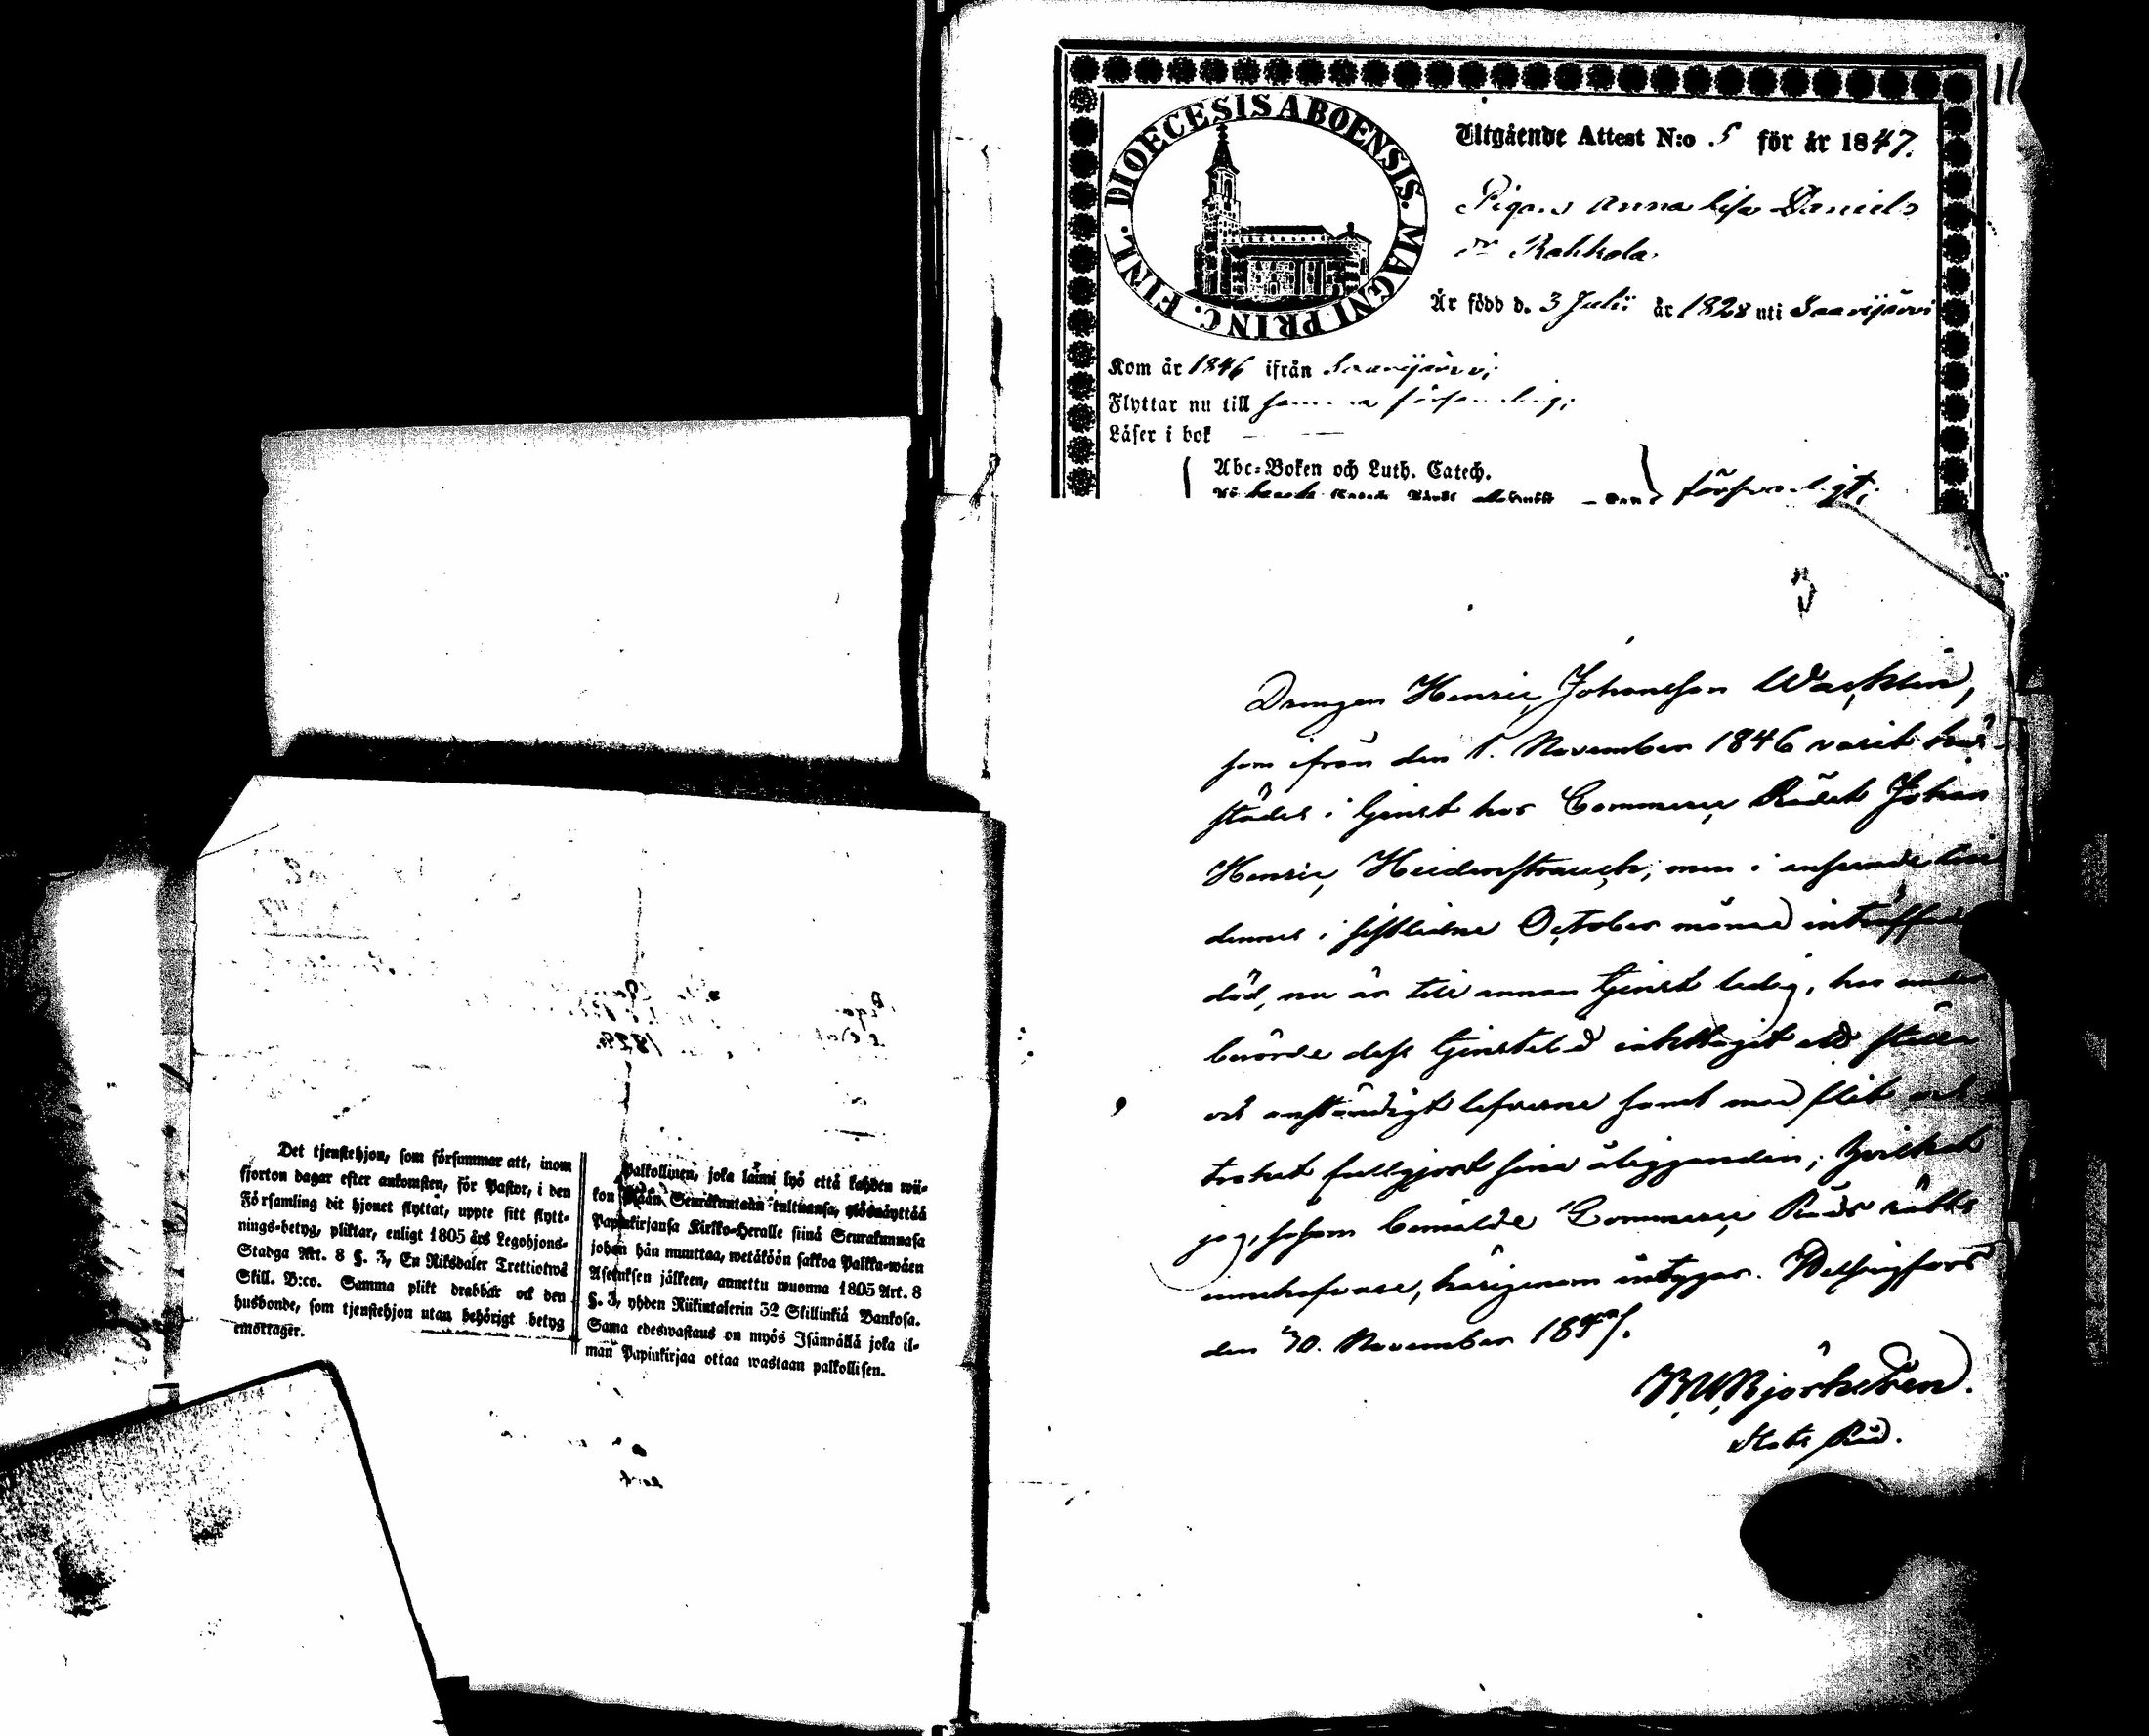 Det tjenstehjon, som försummar att, inom
fjorton dagar efter ankomsten, för Pastor, i den
Församling dit hjonet flyttat, uppte sitt flytt-
nings-betyg, pliktar, enligt 1805 års Legohjons-
Stadga Art. 8 §. 3, En Riksdaler Trettiotwå
Skill. B:co. Samma plikt drabbar ock den
husbonde, som tjenstehjon utan behörigt betyg
emottager.
Palkollinen, joka laimi lyö että kahden wii-
kon Seurakuntaan tultuansa, ylösnäyttää
Papinkirjansa Kirkko-Heralle siinä Seurakunnasa
johon hän muuttaa, wetäköön sakkoa Palkka-wäen
Asetuksen jälkeen, annettu wuonna 1805 Art. 8
§. 3, yhden Riikintalerin 32 Skillinkiä Bankosa.
Sama edeswastaus on myös Isännällä joka il-
man Papinkirjaa ottaa wastaan palkollisen.
11
DIOECESIS ABOENSIS. MAGNI PRINC. FINL.
Utgående Attest N:o 5 för år 1847.
Pigan Anna Lisa Daniels
dr Kahkola
Är född d. 3 Julii år 1828 uti Saarijärvi
Kom år 1846 ifrån Saarijärvi
Flyttar nu till samma församling;
Läser i bok
Abc-Boken och Luth. Catech.
försvarligt;
Drengen Henric Johansson Wacklin,
som ifrån den 1. November 1846 varit här-
städes i tjenst hos Commerce Rådet Johan
Henric Heidenstrauch, men i anseende till
dennes i sistledne October månad inträffade
död, nu är till annan tjenst ledig, har under
berörde dess tjenstetid iakttagit ett stilla
och anständigt lefverne samt med flit och
trohet fullgjort sina åligganden; hvilket
jag, såsom bemälde Commerce Råds rätts
innehafvare, härigenom intygar. Helsingfors
den 30. November 1847.
Björksten.
Stats Råd.